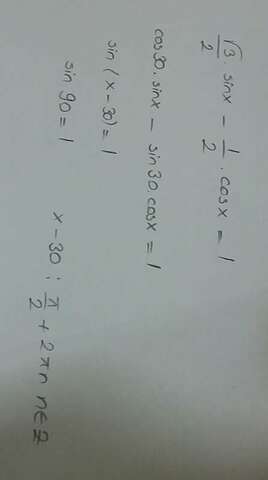 √3/2 sinx - 1/2 . cosx = 1
cos30. sinx - sin30 cosx = 1
sin (x-30) = 1
sin 90 = 1
x - 30 : π/2 + 2πn n∈Z